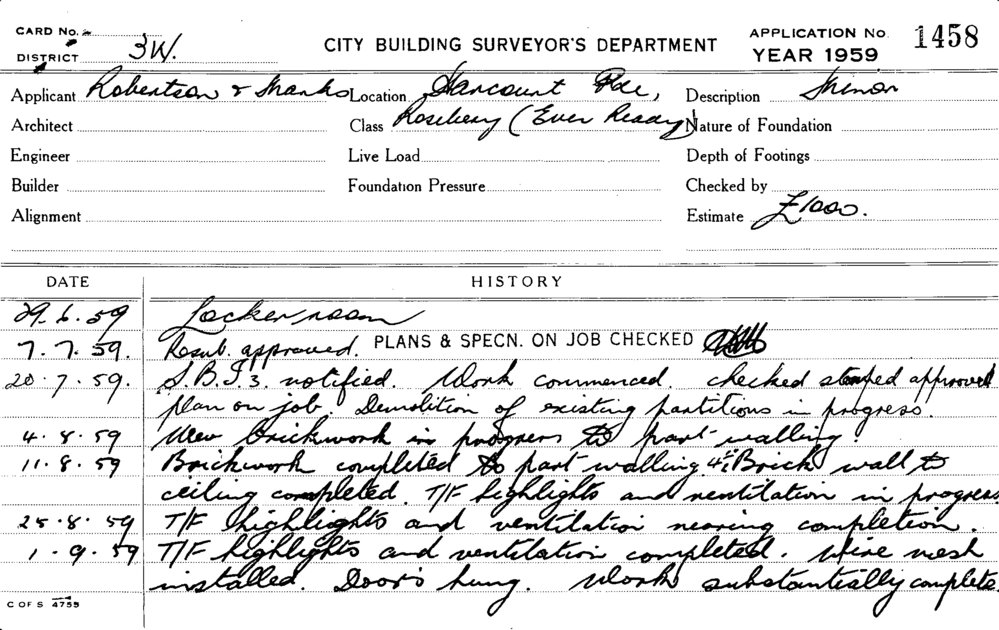 CARD No.
DISTRICT 3W.
CITY BUILDING SURVEYOR'S DEPARTMENT
APPLICATION No. 1458
YEAR 1959
Applicant Robertson & Marks Location Harcourt Pde, Description Minor
Architect Class Rosebery (Ever Ready) Nature of Foundation
Engineer Live Load Depth of Footings
Builder Foundation Pressure Checked by
Alignment Estimate £1000.
DATE HISTORY
29.6.59 Locker room
7.7.59. Resub. approved. PLANS & SPECN. ON JOB CHECKED
20.7.59. S.B.I3. notified. Work commenced. checked stamped approved
plan on job. Demolition of existing partitions in progress.
4.8.59 New brickwork in progress to part walling.
11.8.59 Brickwork completed to part walling 4½ Brick wall to
ceiling completed. T/F highlights and ventilation in progress
25.8.59 T/F highlights and ventilation nearing completion.
1.9.59 T/F highlights and ventilation completed. Wire mesh
installed. Door's hung. Work substantially complete.
C OF S 4755